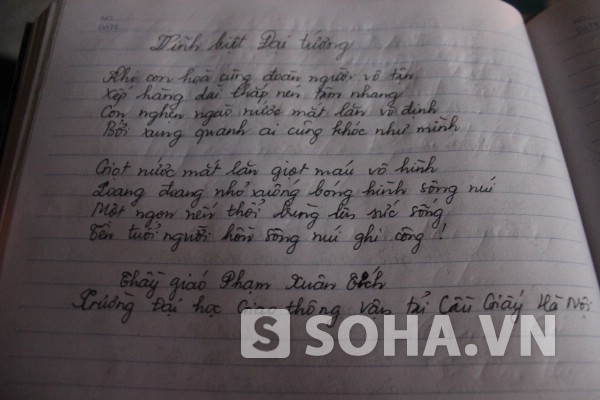 Vĩnh biệt Đại tướng
Khi con hoà cùng đoàn người vô tận
Xếp hàng dài thắp nén tâm nhang
Con nghẹn ngào nước mắt lăn vô định
Bởi xung quanh ai cũng khóc như mình
Giọt nước mắt lăn giọt máu vô hình
Loang nhỏ xuống bóng hình sông núi
Một ngọn nến thổi bùng lên sức sống
Tên tuổi người hồn sông núi ghi công!
Thầy giáo Phạm Xuân
Trường Đại học Giao thông Vận tải Cầu Giấy Hà Nội
S SOHA.VN